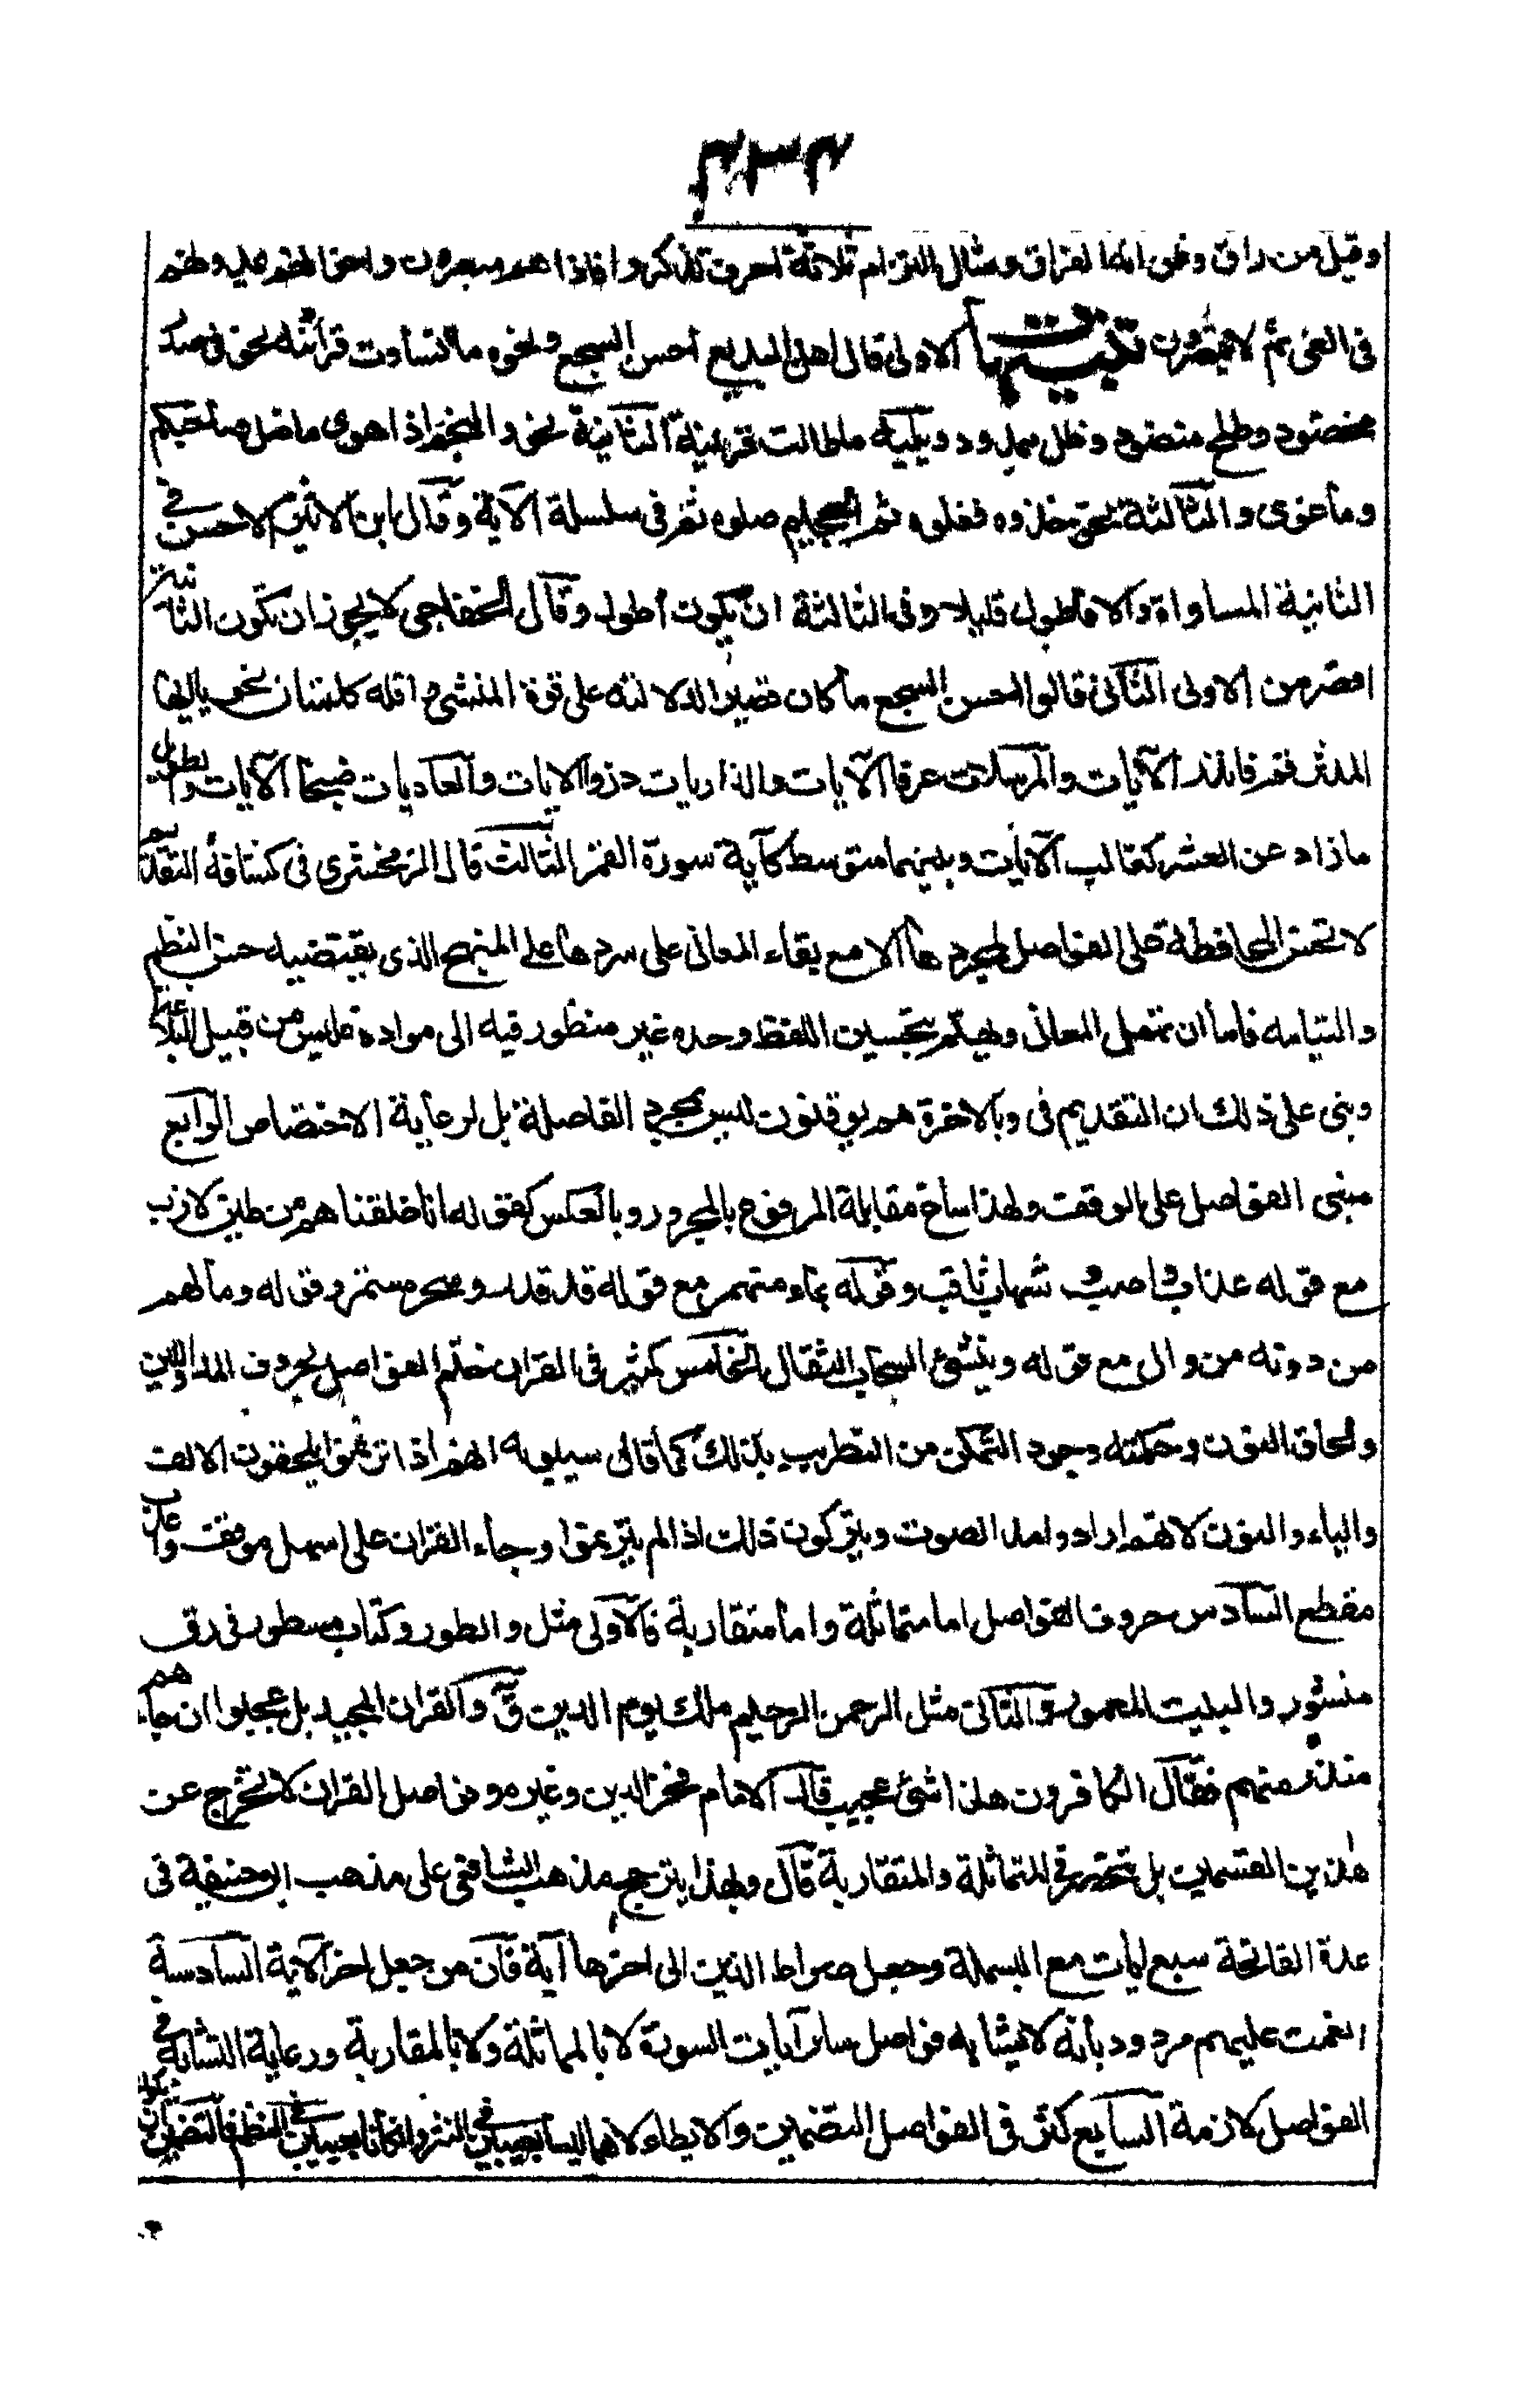 ٤٣٤
وقيل من راق وظن انه الفراق ومثال التزام ثلاثة احرف تذكروا فاذا هم مبصرون واخوانهم يمدونهم
فى الغى ثم لا يقصرون تنبيهات الاولى قال اهل البديع احسن السجع ونحوه ما تساوت قرائنه نحو فى سدر
مخضود وطلح منضود وظل ممدود ويليه ما طالت قرينته الثانية نحو والنجم اذا هوى ما ضل صاحبكم
وما غوى والثالثة نحو خذوه فغلوه ثم الجحيم صلوه ثم فى سلسلة الآية وقال ابن الاثير الاحسن فى
الثانية المساواة والا فاطول قليلا وفى الثالثة ان يكون أطول وقال الخفاجى لا يجوز ان تكون الثانية
اقصر من الاولى الثانى قالوا احسن السجع ما كان قصيرا لدلالته على قوة المنشئ واقله كلمتان نحو يا ايها
المدثر قم فانذر الآيات والمرسلات عرفا الآيات والذاريات ذروا الايات والعاديات ضبحا الآيات والطويل
ما زاد عن العشر كغالب الآيات وبينهما متوسط كآية سورة القمر الثالث قال الزمخشرى فى كشافه القديم
لا تحسن المحافظة على الفواصل لمجردها الا مع بقاء المعانى على سردها على المنهج الذى يقتضيه حسن النظم
والتيامه فاما ان تهمل المعانى ويهتم بتحسين اللفظ وحده غير منظور فيه الى مواده فليس من قبيل البلاغة
وبنى على ذلك ان التقديم فى وبالاخرة هم يوقنون ليس لمجرد الفاصلة بل لرعاية الاختصاص الرابع
مبنى الفواصل على الوقف ولهذا ساغ مقابلة المرفوع بالمجرور وبالعكس كقوله انا خلقناهم من طين لازب
مع قوله عذاب واصب و شهاب ثاقب وقوله بماء منهمر مع قوله قد قدر وسحر مستمر وقوله وما لهم
من دونه من وال مع قوله وينشئ السحاب الثقال الخامس كثر فى القران ختم الفواصل بحروف المد واللين
والحاق النون وحكمته وجود التمكن من التطريب بذلك كما قال سيبويه انهم اذا ترنموا يلحقون الالف
والياء والنون لانهم ارادوا مد الصوت ويتركون ذلك اذا لم يترنموا وجاء القران على اسهل موقف واعذب
مقطع السادس حروف الفواصل اما متماثلة واما متقاربة فالاولى مثل والطور وكتاب مسطور فى رق
منشور والبيت المعمور والثانى مثل الرحمن الرحيم ملك يوم الدين ق والقران المجيد بل عجبوا ان جاءهم
منذر منهم فقال الكافرون هذا شئ عجيب قال الامام فخر الدين وغيره وفواصل القران لا تخرج عن
هذين القسمين بل تنحصر فى المتماثلة والمتقاربة قال وبهذا يترجح مذهب الشافعى على مذهب ابو حنيفة فى
عدة الفاتحة سبع ايات مع البسملة وجعل صراط الذين الى اخرها آية فان من جعل اخر الآية السادسة
انعمت عليهم مردود بأنه لا يشابه فواصل سائر آيات السورة لا بالمماثلة ولا بالمقاربة ورعاية التشابه فى
الفواصل لازمة السابع كثر فى الفواصل التضمين والايطاء لانهما ليسا بعيبين فى النثر وان كانا بعيبين فى النظم فالتضمين ان يكون